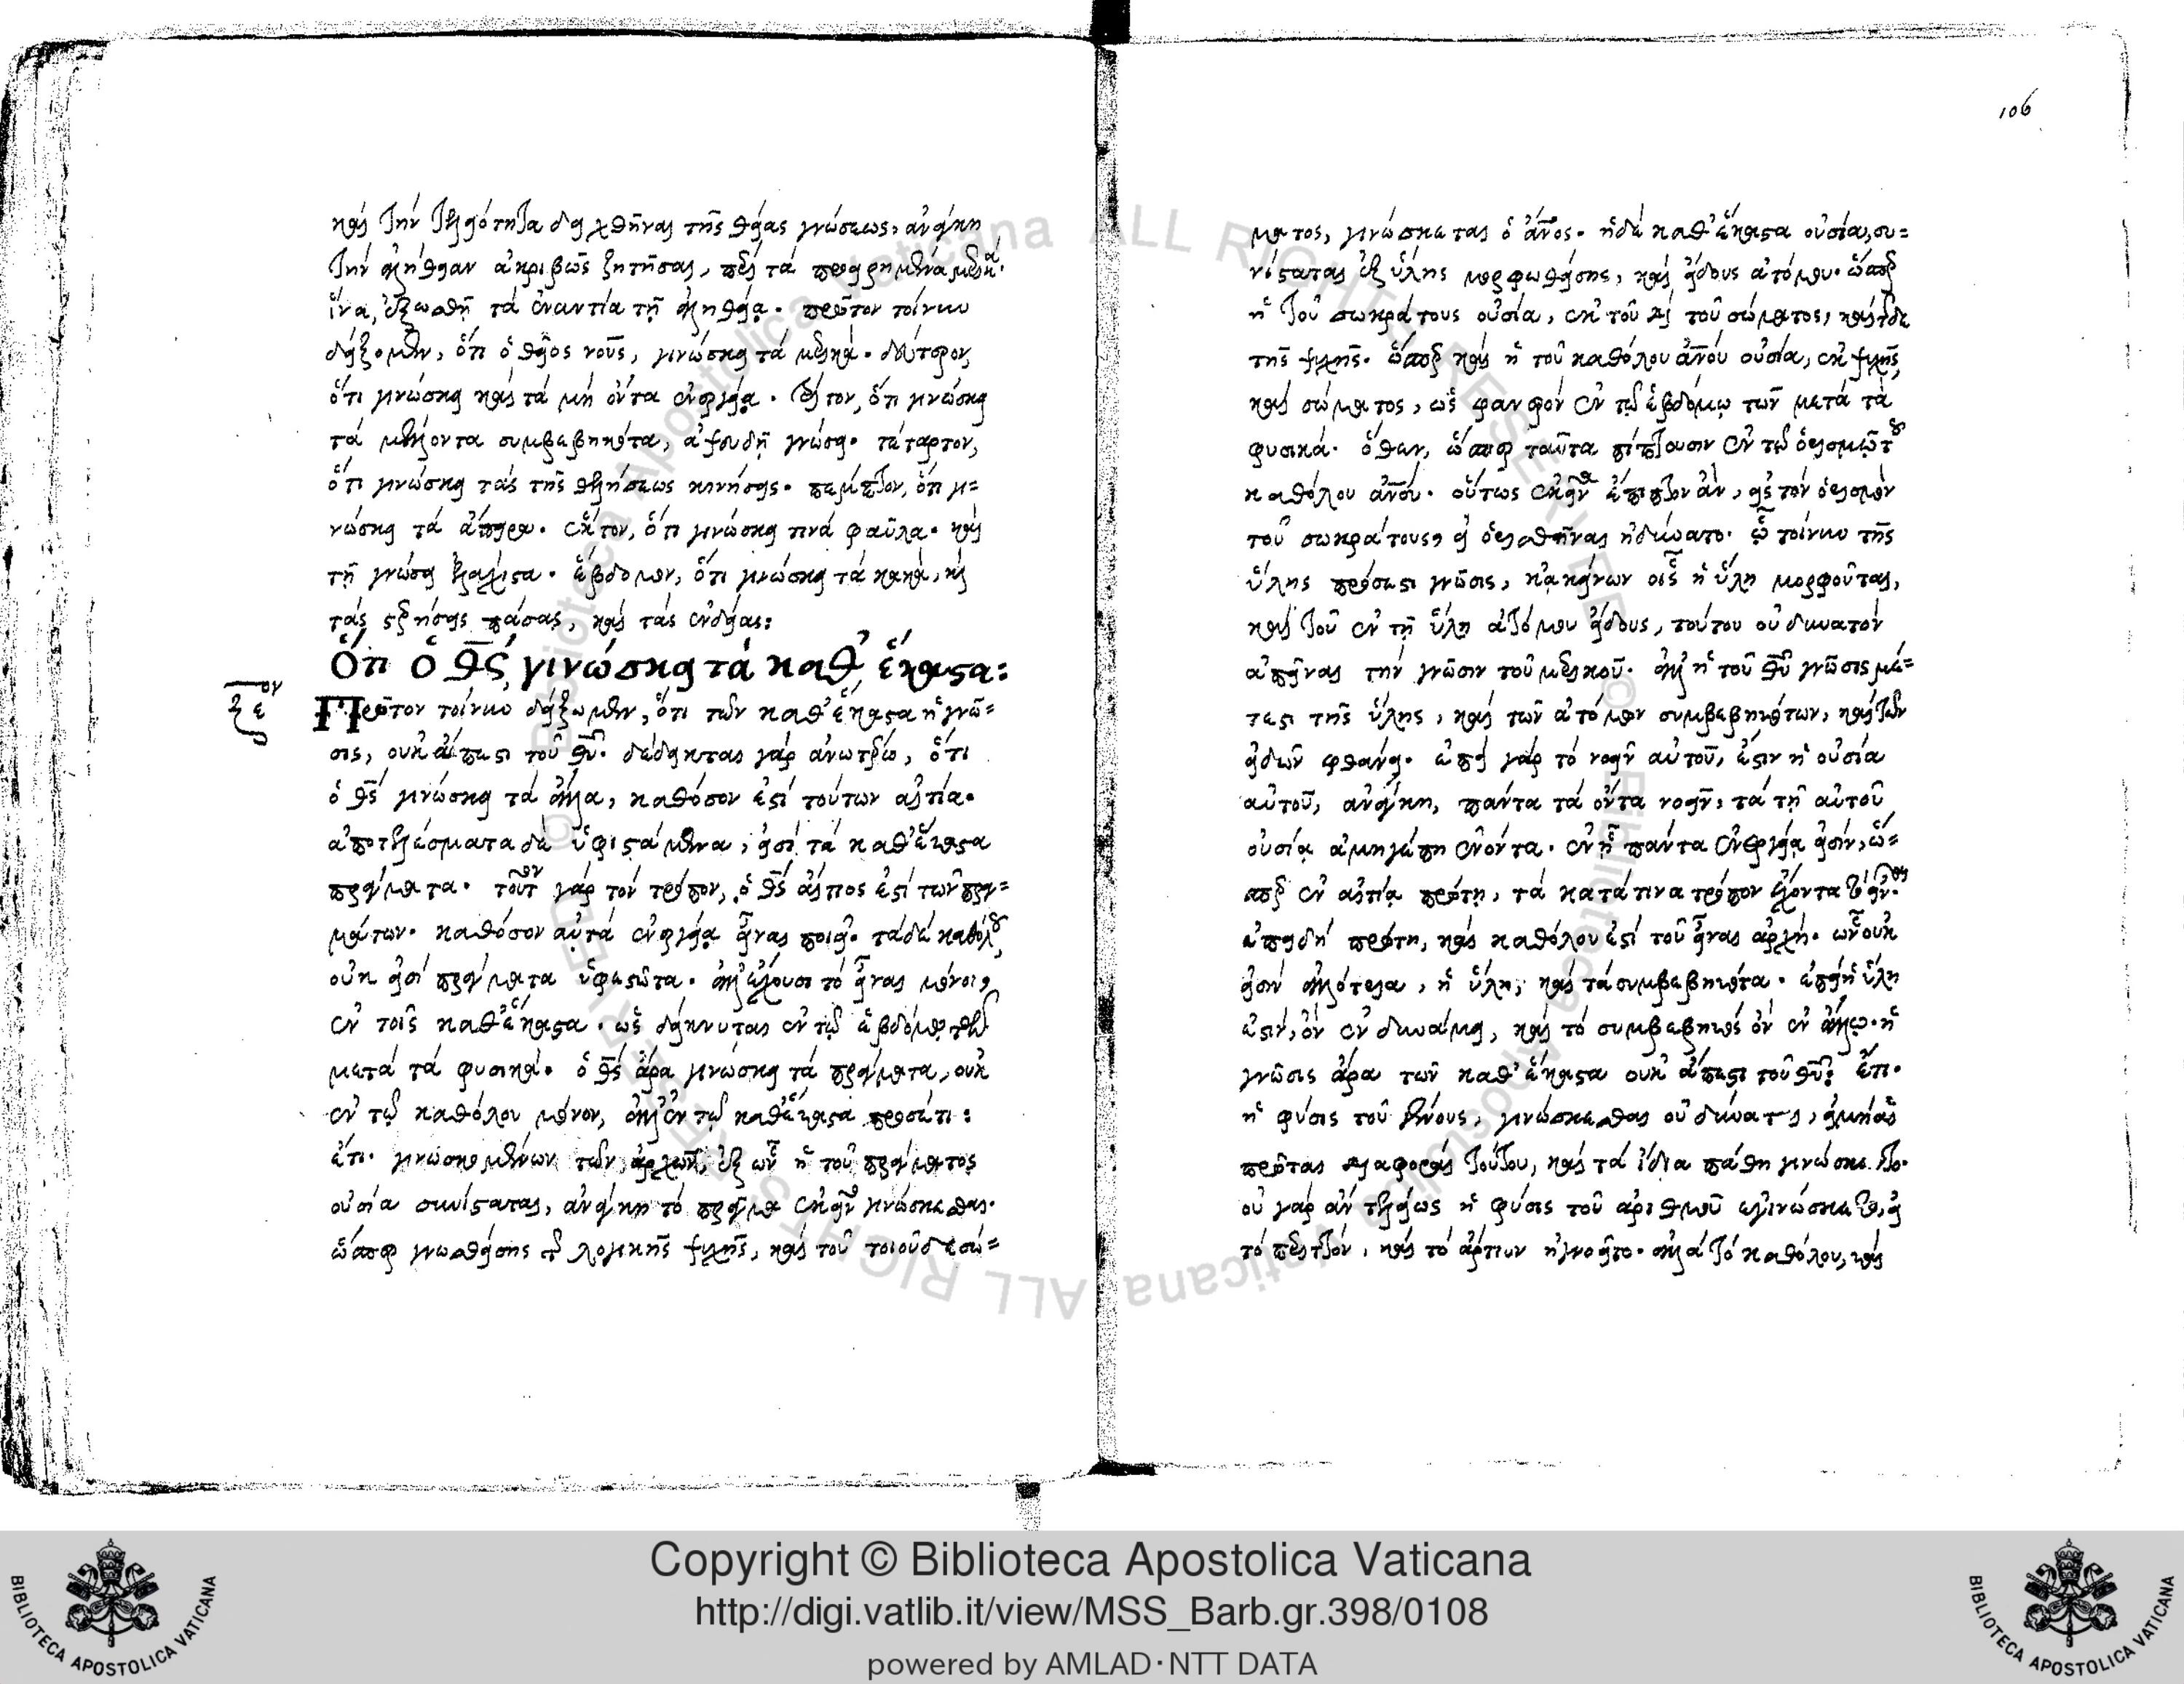 καὶ τὴν τελειότητα δειχθῆναι τῆς θείας γνώσεως, ἀνάγκη
τὴν ἀλήθειαν ἀκριβῶς ζητῆσαι, περὶ τὰ προειρημένα μερικά·
ἵνα, ἐξωσθῇ τὰ ἐναντία τῇ ἀληθείᾳ. πρῶτον τοίνυν
δείξομεν, ὅτι ὁ θεῖος νοῦς, γινώσκει τὰ μερικά. δεύτερον,
ὅτι γινώσκει καὶ τὰ μὴ ὄντα ἐνεργείᾳ. τρίτον, ὅτι γινώσκει
τὰ μέλλοντα συμβεβηκότα, ἀψευδῆ γνώσει. τέταρτον,
ὅτι γινώσκει τὰς τῆς θελήσεως κινήσεις. πέμπτον, ὅτι γι=
νώσκει τὰ ἄπειρα. ἕκτον, ὅτι γινώσκει τινὰ φαῦλα. καὶ
τῇ γνώσει ἐλάχιστα. ἕβδομον, ὅτι γινώσκει τὰ κακά, καὶ
τὰς στερήσεις πάσας, καὶ τὰς ἐνδείας:
Ὅτι ὁ θς, γινώσκει τὰ καθ' ἕκαστα:
ξεον
Πρῶτον τοίνυν δείξωμεν, ὅτι τῶν καθ' ἕκαστα ἡ γνῶ=
σις, οὐκ ἄπεστι τοῦ θυ. δέδεικται γὰρ ἀνωτέρω, ὅτι
ὁ θς γινώσκει τὰ ἄλλα, καθόσον ἐστὶ τούτων αἰτία.
ἀποτελέσματα δὲ ὑφιστάμενα, εἰσὶ τὰ καθ' ἕκαστα
πράγματα. τοῦτον γὰρ τὸν τρόπον, ὁ θς αἴτιος ἐστὶ τῶν πραγ=
μάτων. καθόσον αὐτὰ ἐνεργείᾳ εἶναι ποιεῖ. τὰ δὲ καθόλου
οὐκ εἰσὶ πράγματα ὑφεστῶτα. ἀλλ' ἔχουσι τὸ εἶναι μόνοις
ἐν τοῖς καθ' ἕκαστα. ὡς δείκνυται ἐν τῷ ἑβδόμῳ τῶν
μετὰ τὰ φυσικά. ὁ θς ἄρα γινώσκει τὰ πράγματα, οὐκ
ἐν τῷ καθόλου μόνον, ἀλλ' ἐν τῷ καθ' ἕκαστα προσέτι:
ἔτι. γινωσκομένων τῶν ἀρχῶν, ἐξ ὧν ἡ τοῦ πράγματος
οὐσία συνίσταται, ἀνάγκη τὸ πρᾶγμα ἐκεῖνο γινώσκεσθαι.
ὥσπερ γνωσθείσης τῆς λογικῆς ψυχῆς, καὶ τοῦ τοιοῦδε σώ=
106
ματος, γινώσκεται ὁ ἄνος. ἡ δὲ καθ' ἕκαστα οὐσία, συ=
νίσταται ἐξ ὕλης μορφωθείσης, καὶ εἴδους ἀτόμου. ὥσπερ
ἡ τοῦ σωκράτους οὐσία, ἐκ τοῦδε τοῦ σώματος, καὶ τῆσδε
τῆς ψυχῆς. ὥσπερ καὶ ἡ τοῦ καθόλου ἄνου οὐσία, ἐκ ψυχῆς,
καὶ σώματος, ὡς φανερὸν ἐν τῷ ἑβδόμῳ τῶν μετὰ τὰ
φυσικά. ὅθεν, ὥσπερ ταῦτα πίπτουσιν ἐν τῷ ὁρισμῷ τοῦ
καθόλου ἄνου. οὕτως ἐκεῖνα ἔπιπτον ἄν, εἰς τὸν ὁρισμὸν
τοῦ σωκράτους, εἰ ὁρισθῆναι ἠδύνατο. ᾧ τοίνυν τῆς
ὕλης πρόσεστι γνῶσις, κἀκείνων οἷς ἡ ὕλη μορφοῦται,
καὶ τοῦ ἐν τῇ ὕλῃ ἀτόμου εἴδους, τούτου οὐ δυνατὸν
ἀπεῖναι τὴν γνῶσιν τοῦ μερικοῦ. ἀλλ' ἡ τοῦ θυ γνῶσις μέ=
χρι τῆς ὕλης, καὶ τῶν ἀτόμων συμβεβηκότων, καὶ τῶν
εἰδῶν φθάνει. ἐπεὶ γὰρ τὸ νοεῖν αὐτοῦ, ἐστὶν ἡ οὐσία
αὐτοῦ, ἀνάγκη, πάντα τὰ ὄντα νοεῖν, τὰ τῇ αὐτοῦ
οὐσίᾳ ἀμηγέπη ἐνόντα. ἐν ᾗ πάντα ἐνεργείᾳ εἰσίν, ὥ=
σπερ ἐν αἰτίᾳ πρώτῃ, τὰ κατά τινα τρόπον ἔχοντα τὸ εἶναι.
ἐπειδὴ πρώτη, καὶ καθόλου ἐστὶ τοῦ εἶναι ἀρχή. ὧν οὐκ
εἰσὶν ἀλλότρια, ἡ ὕλη, καὶ τὰ συμβεβηκότα. ἐπεὶ ἡ ὕλη
ἐστίν, ὂν ἐν δυνάμει, καὶ τὸ συμβεβηκὸς ὂν ἐν ἄλλῳ. ἡ
γνῶσις ἄρα τῶν καθ' ἕκαστα οὐκ ἄπεστι τοῦ θυ: ἔτι.
ἡ φύσις τοῦ γένους, γινώσκεσθαι οὐ δύναται, εἰ μὴ αἱ
πρῶται διαφοραὶ τούτου, καὶ τὰ ἴδια πάθη γινώσκοιντο.
οὐ γὰρ ἂν τελείως ἡ φύσις τοῦ ἀριθμοῦ ἐγινώσκετο, εἰ
τὸ περιττὸν, καὶ τὸ ἄρτιον ἠγνοεῖτο. ἀλλὰ τὸ καθόλου, καὶ
BIBLIOTECA APOSTOLICA VATICANA
Copyright © Biblioteca Apostolica Vaticana
http://digi.vatlib.it/view/MSS_Barb.gr.398/0108
powered by AMLAD·NTT DATA
BIBLIOTECA APOSTOLICA VATICANA